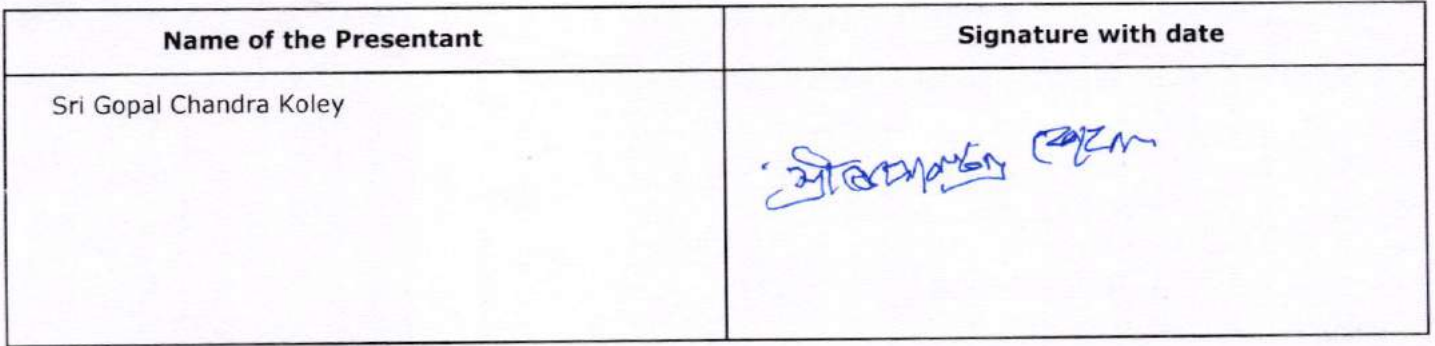 Name of the Presentant
Signature with date
Sri Gopal Chandra Koley
শ্রী গোপাল চন্দ্র কোলে